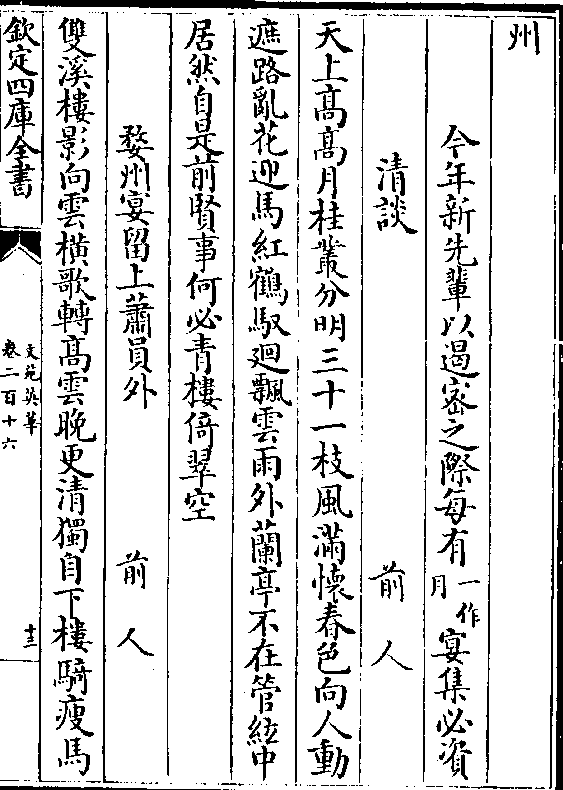 州
今年新先輩以遏密之際每有一作月宴集必資
清談　前人
天上髙髙月桂叢分明三十一枝風滿懷春色向人動
遮路亂花迎馬紅鶴馭迴飄雲雨外蘭亭不在管絃中
居然自是前賢事何必青樓倚翠空
婺州宴留上蕭員外　前人
雙溪樓影向雲橫歌轉髙雲晚更清獨自下樓騎瘦馬
欽定四庫全書
文苑英華
卷二百十六
十三